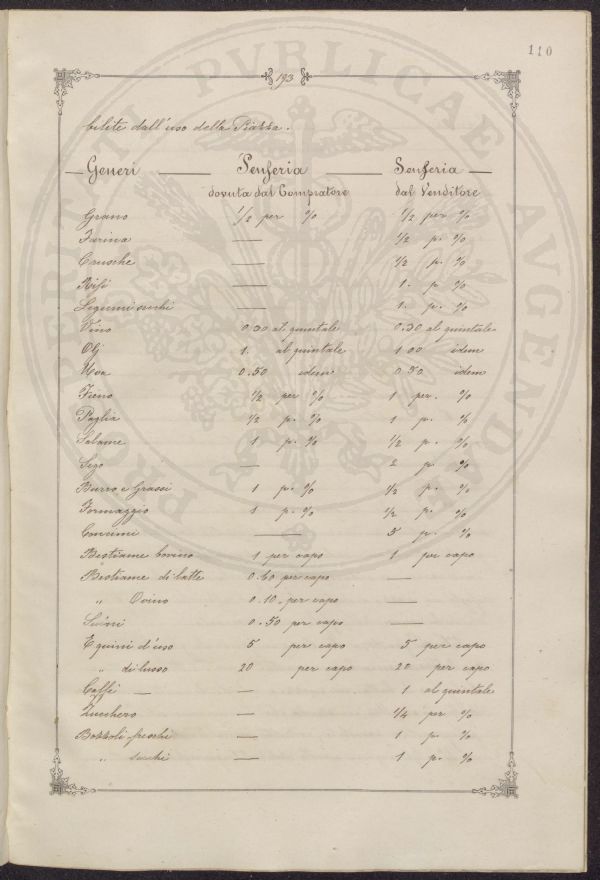 110
193
bilite dall'uso della Piazza.
Generi Senseria Senseria
dovuta dal Compratore dal Venditore
Grano 1/2 per % 1/2 per %
Farina — 1/2 p. %
Crusche — 1/2 p. %
Risi — 1. p. %
Legumi secchi — 1. p. %
Vino 0.30 al quintale 0.30 al quintale
Olj 1. al quintale 1 00 idem
Uva 0.50 idem 0 50 idem
Fieno 1/2 per % 1 per. %
Paglia 1/2 p. % 1 p. %
Salame 1 p. % 1/2 p. %
Sego — 2 p. %
Burro e Grassi 1 p. % 1/2 p. %
Formaggio 1 p. % 1/2 p. %
Concimi — 5 p. %
Bestiame bovino 1 per capo 1 per capo
Bestiame di latte 0.60 per capo —
" Ovino 0.10. per capo —
Suini 0.50 per capo —
Equini d'uso 5 per capo 5 per capo
" di lusso 20 per capo 20 per capo
Caffè — — 1 al quintale
Zucchero — 1/4 per %
Bozzoli freschi — 1 p. %
" secchi — 1 p. %
PVBLICAE